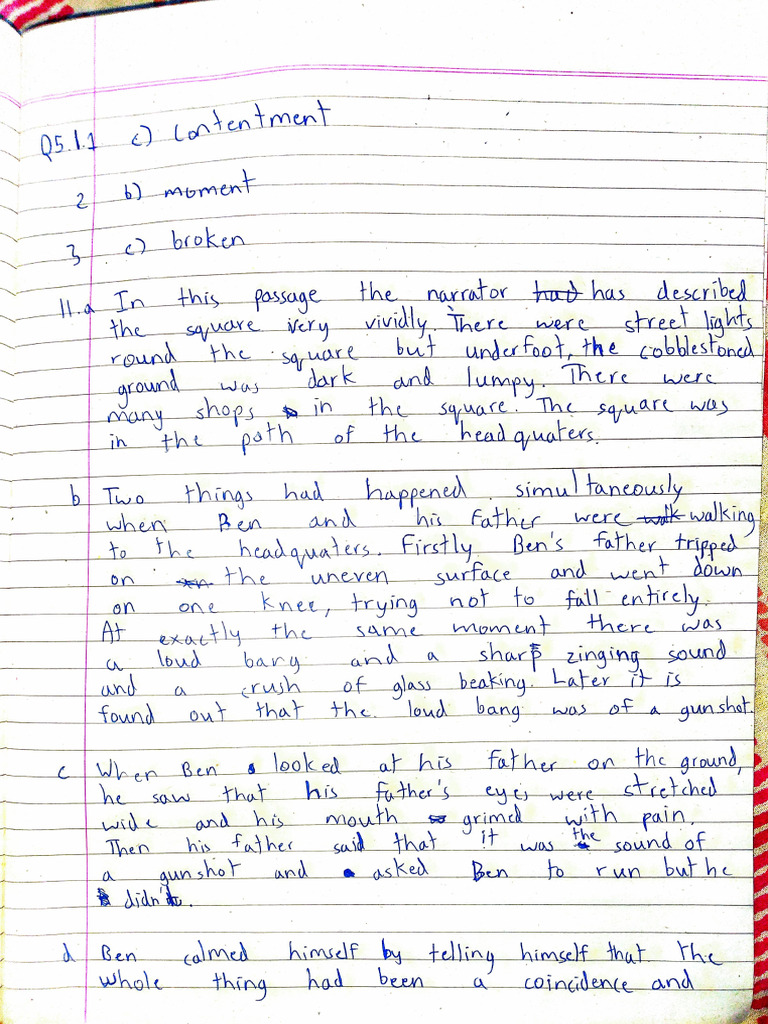 Q5.1.1 c) Contentment
2 b) moment
3 c) broken
11.a In this passage the narrator had has described
the square very vividly. There were street lights
round the square but underfoot, the cobblestoned
ground was dark and lumpy. There were
many shops in the square. The square was
in the path of the headquaters.
b Two things had happened simultaneously
when Ben and his father were walk walking
to the headquaters. Firstly Ben's father tripped
on the uneven surface and went down
on one knee, trying not to fall entirely.
At exactly the same moment there was
a loud bang and a sharp zinging sound
and a crush of glass beaking. Later it is
found out that the loud bang was of a gunshot.
c When Ben looked at his father on the ground,
he saw that his father's eyes were stretched
wide and his mouth grimed with pain.
Then his father said that it was the sound of
a gunshot and asked Ben to run but he
didn't.
d Ben calmed himself by telling himself that the
whole thing had been a coincidence and